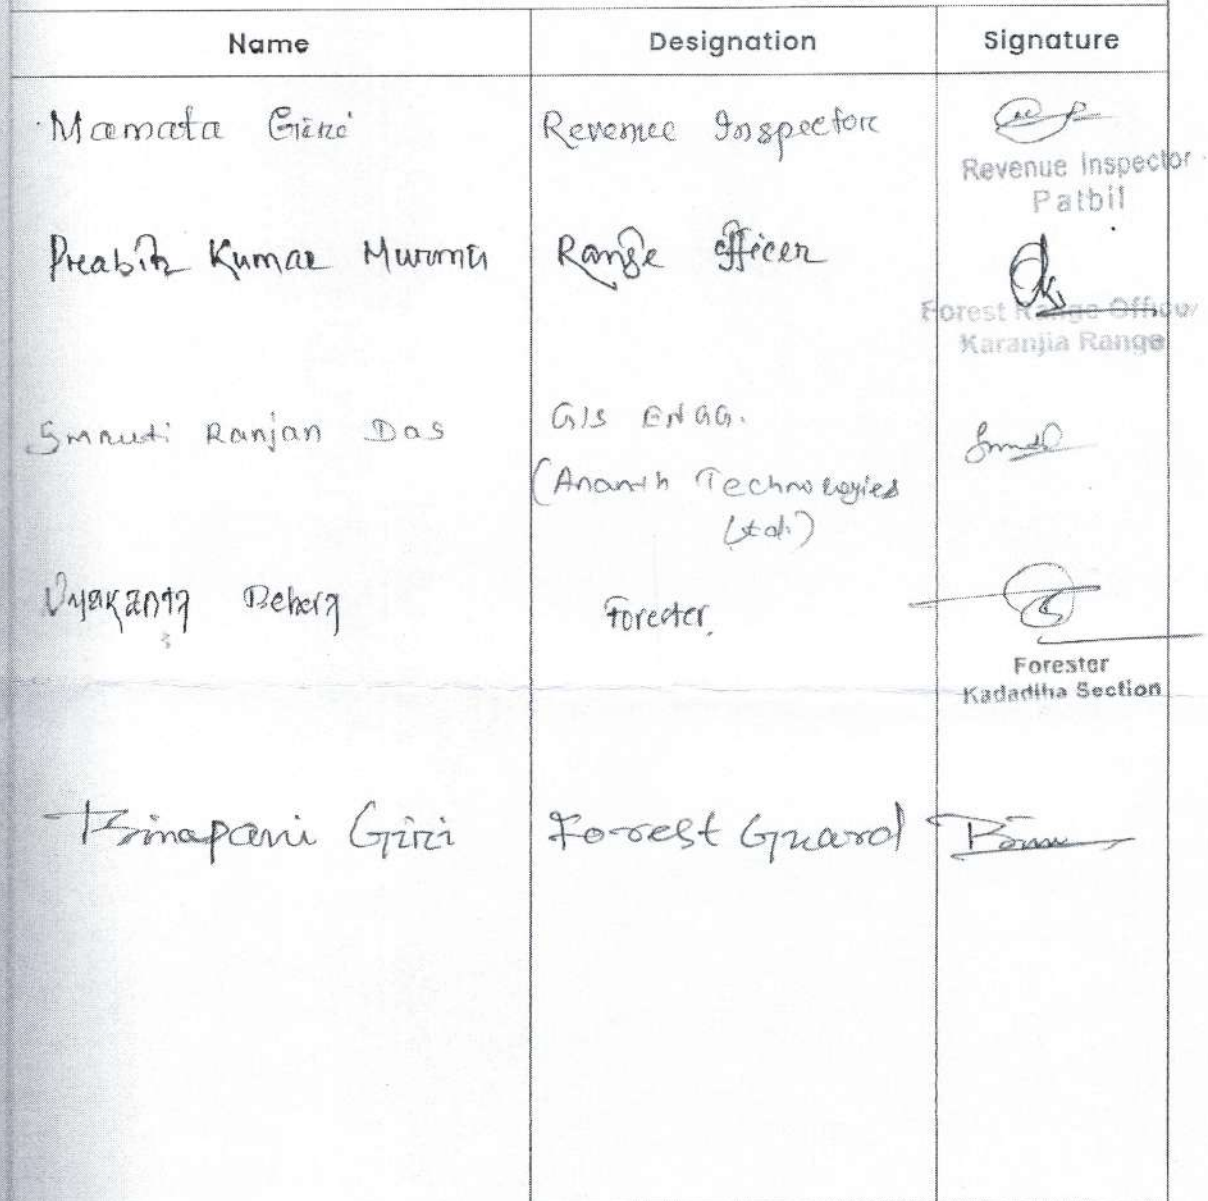 Name Designation Signature
Mamata Giri Revenue Inspector
Revenue Inspector
Patbil
Prabir Kumar Murmu Range Officer
Forest Range Officer
Karanjia Range
Smruti Ranjan Das GIS ENGG.
(Ananth Technologies
Ltd.)
Behera Forester
Forester
Kadadiha Section
Binapani Giri Forest Guard